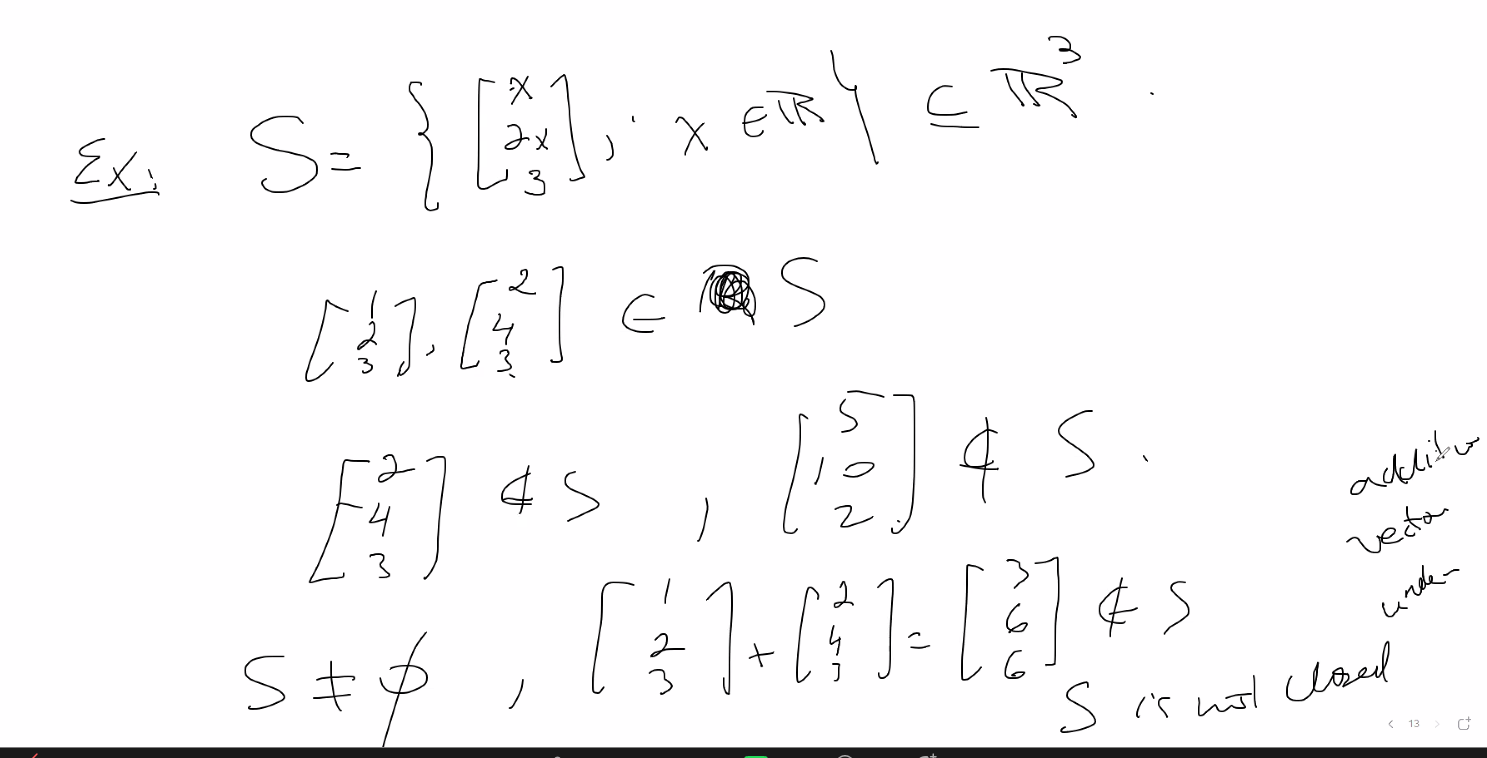 Ex: S = { [x 2x 3] ; x ∈ ℝ } ⊆ ℝ³.
[1 2 3], [2 4 3] ∈ S
[2 4 3] ∉ S , [5 10 2] ∉ S.
S ≠ ∅ , [1 2 3] + [2 4 3] = [3 6 6] ∉ S
S is not closed
under
vector
13